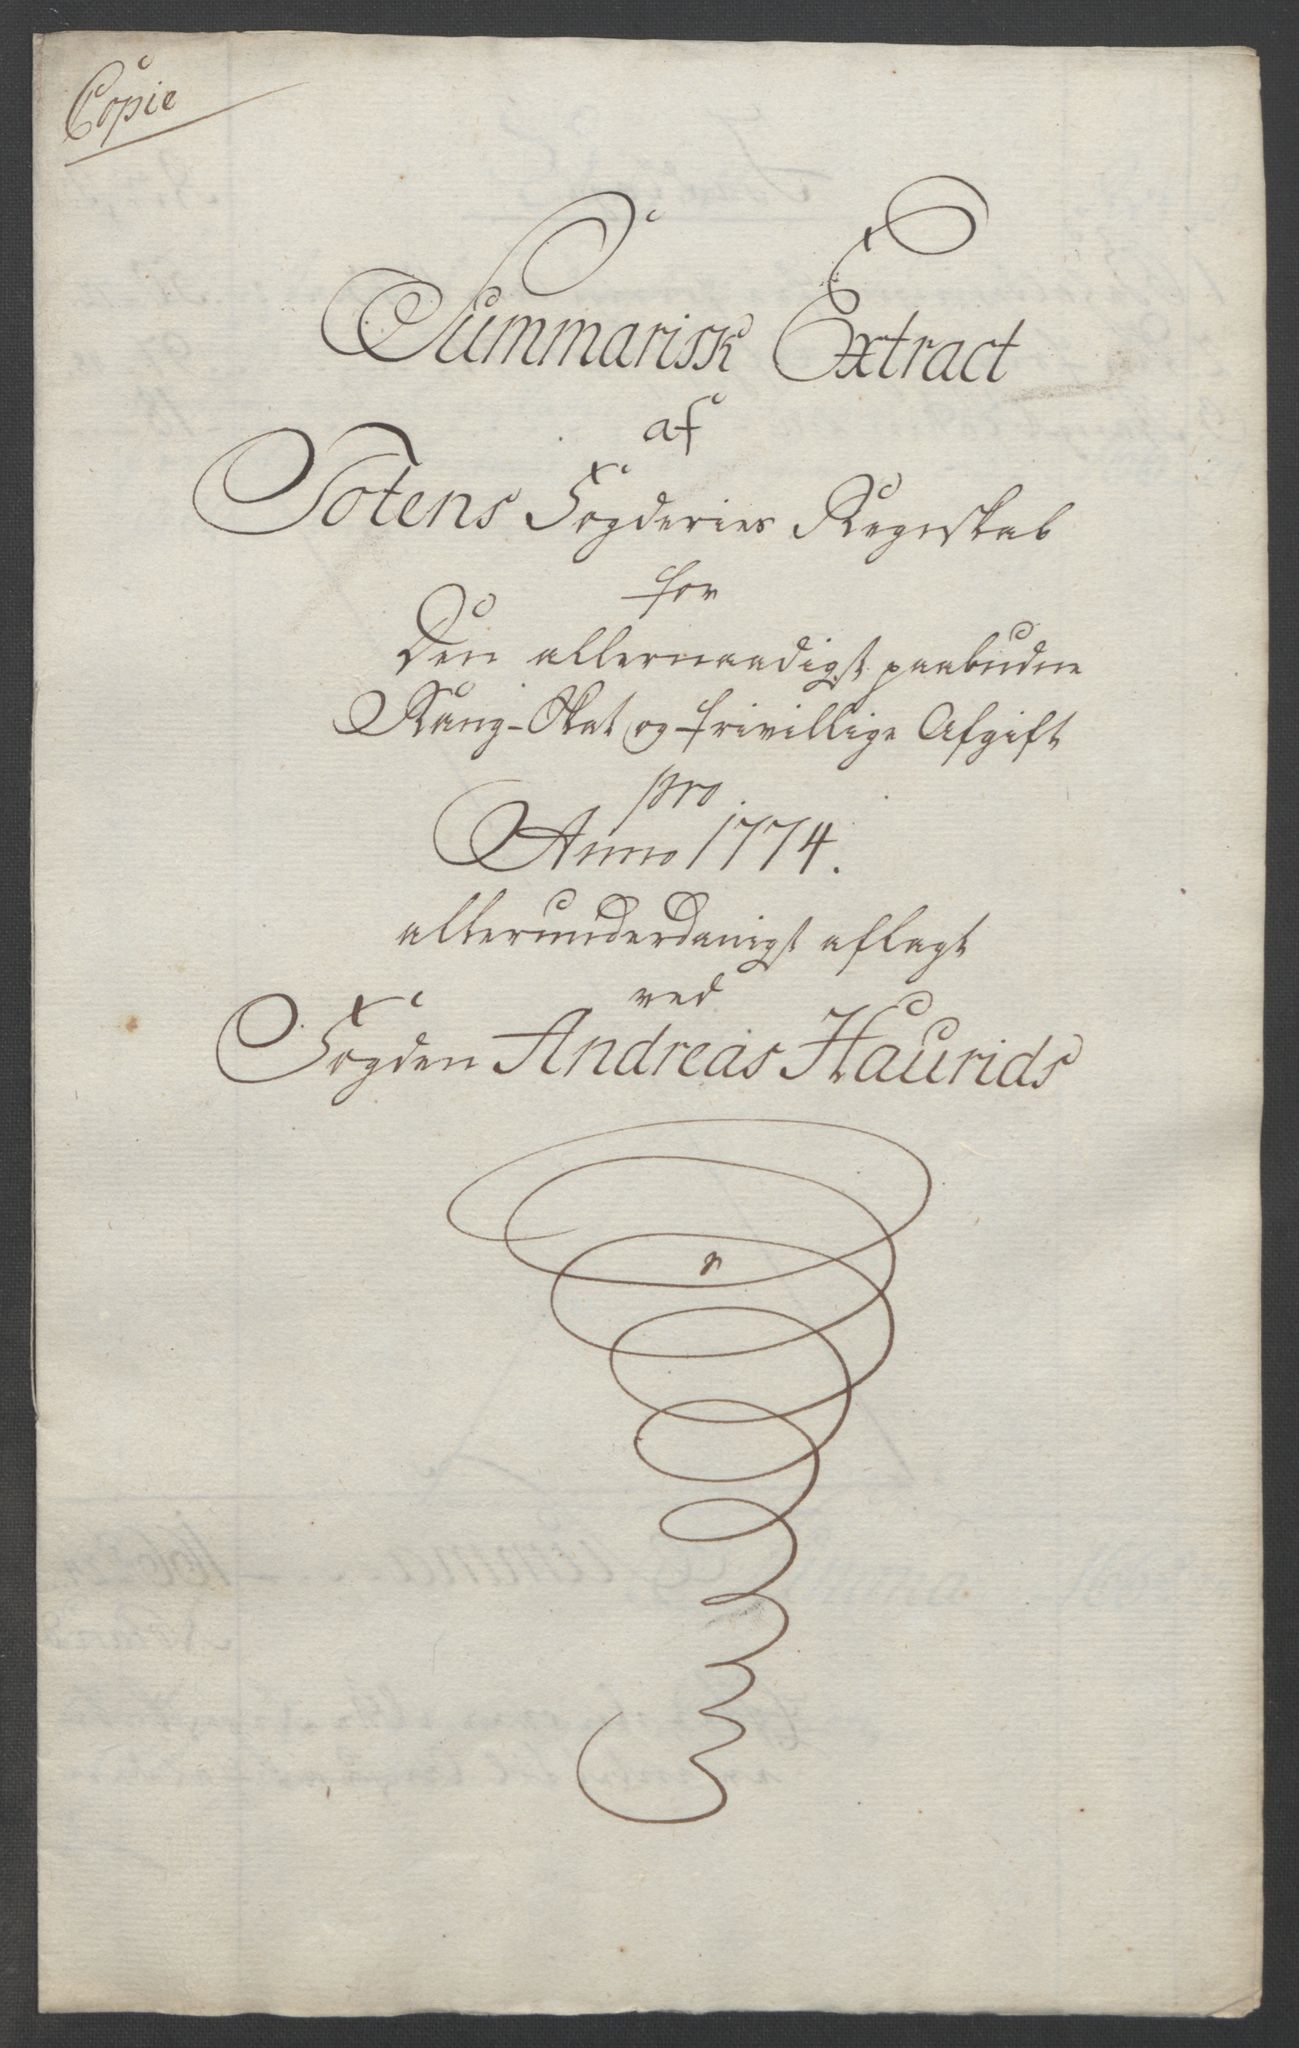 Copie
Summarisk Extract
af
Totens Fogderies Regnskab
for
Den allernaadigst paabudne
Rang-Skat og frivillige Afgift
pro
Anno 1774.
allerunderdanigst aflagt
ved
Fogden Andreas Haurids